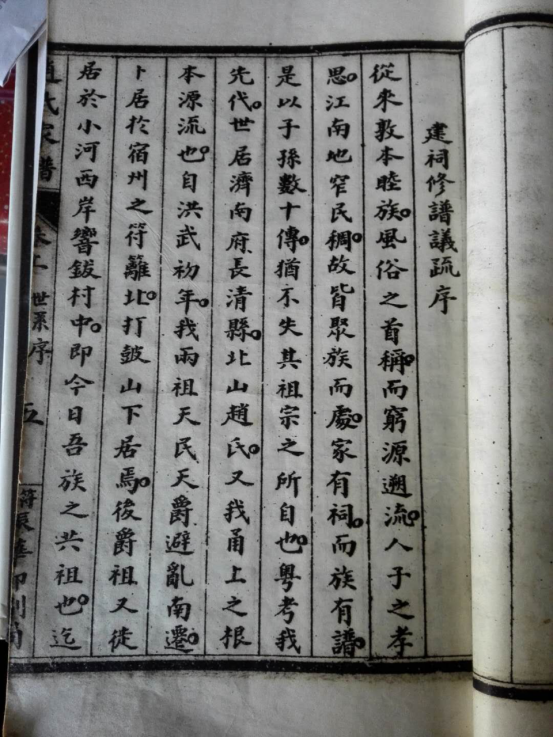 建祠修譜議疏序
從來敦本睦族。風俗之首稱。而窮源遡流。人子之孝
思。江南地窄民稠。故皆聚族而處。家有祠。而族有譜。
是以子孫數十傳。猶不失其祖宗之所自也。粵考我
先代。世居濟南府長清縣。北山趙氏。又我甬上之根
本源流也。自洪武初年。我兩祖天民天爵避亂南遷。
卜居於宿州之符籬北。打皷山下居焉。後爵祖又徙
居於小河西岸響鈸村中。即今日吾族之共祖也。迄
趙氏家譜
世系序
五